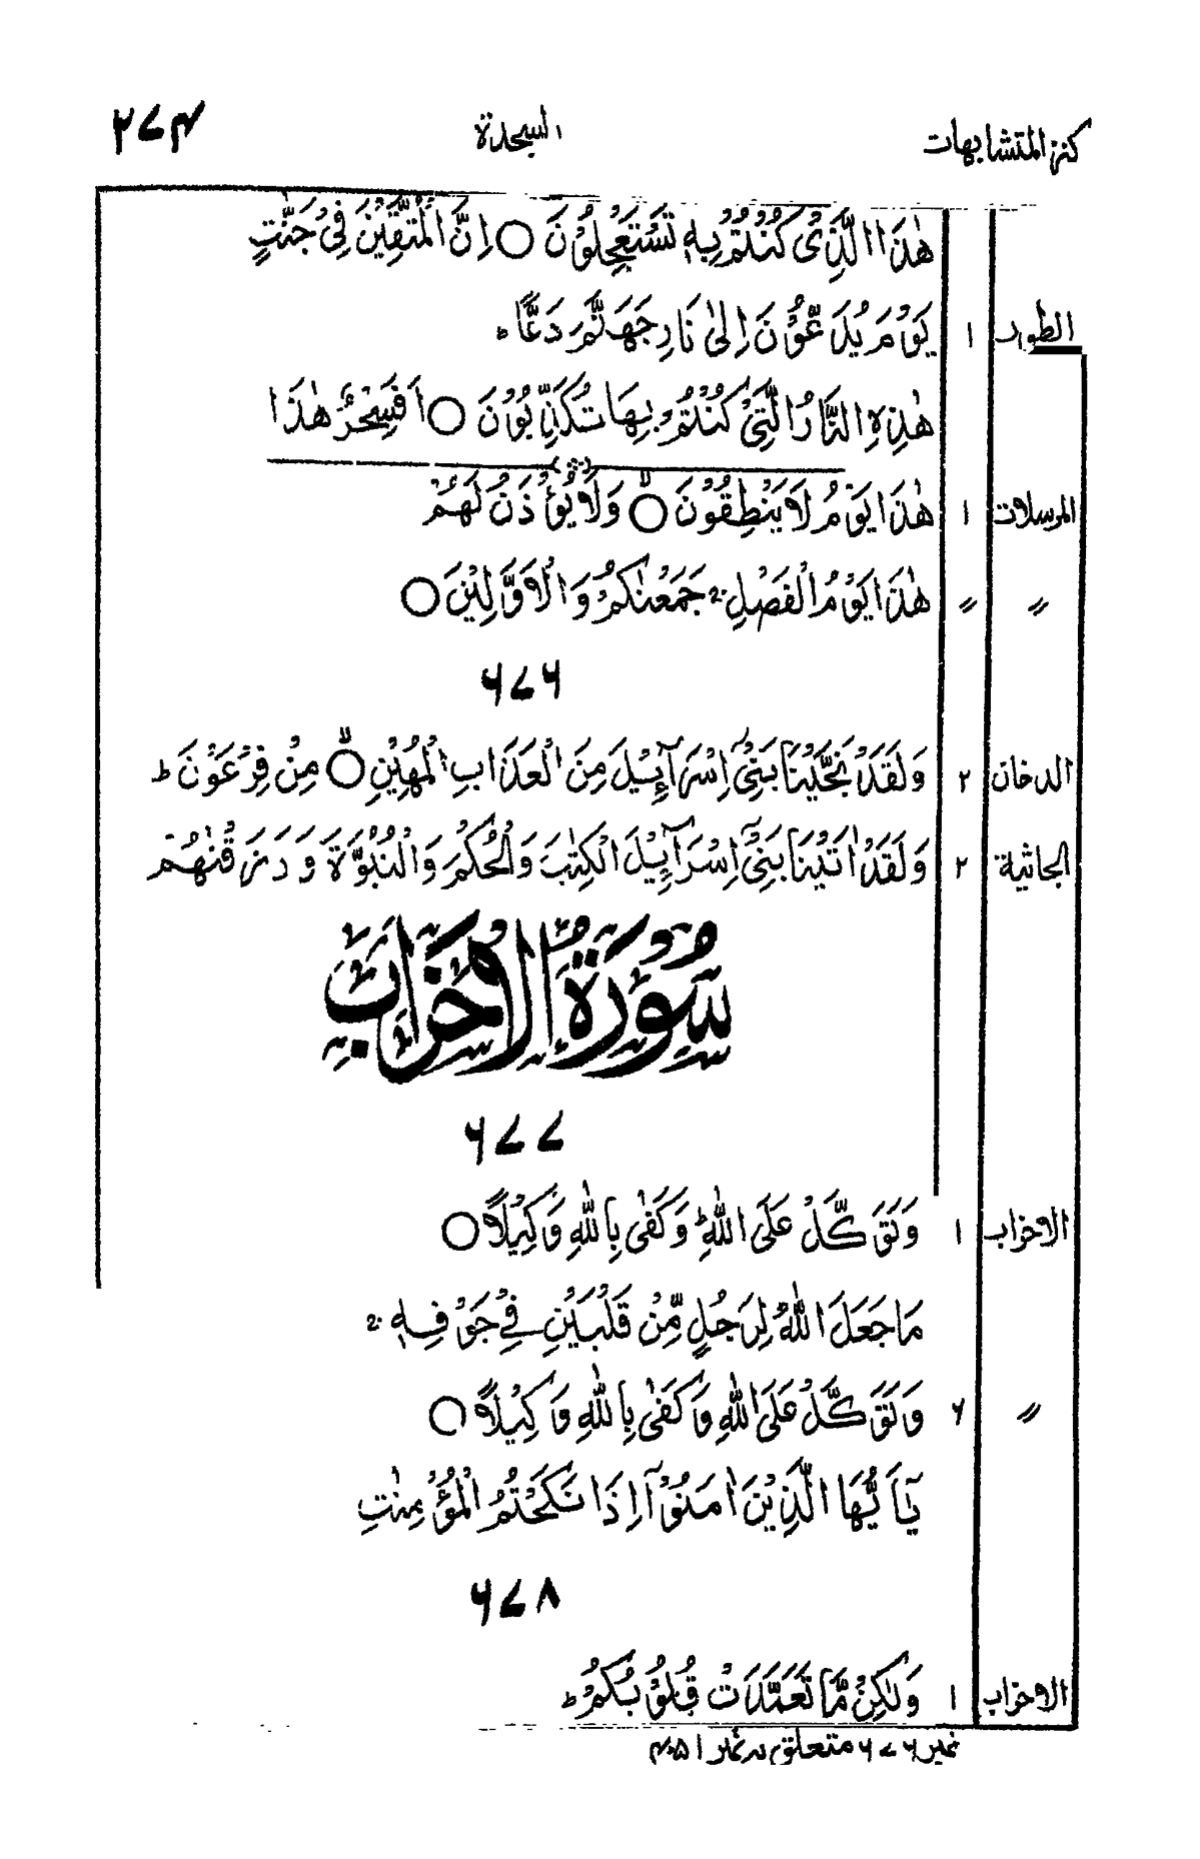 كنز المتشابهات السجدة ۲۷۴
هٰذَا الَّذِىْ كُنْتُمْ بِهٖ تَسْتَعْجِلُوْنَ ○ اِنَّ الْمُتَّقِيْنَ فِىْ جَنّٰتٍ
الطور ۱ يَوْمَ يُدَعُّوْنَ اِلٰى نَارِ جَهَنَّمَ دَعًّا ؕ
هٰذِهِ النَّارُ الَّتِىْ كُنْتُمْ بِهَا تُكَذِّبُوْنَ ○ اَفَسِحْرٌ هٰذَا
المرسلات ۱ هٰذَا يَوْمُ لَا يَنْطِقُوْنَ ○ۙ وَلَا يُؤْذَنُ لَهُمْ
〃 〃 هٰذَا يَوْمُ الْفَصْلِ ۚ جَمَعْنٰكُمْ وَالْاَوَّلِيْنَ ○
۶۷۶
الدخان ۲ وَلَقَدْ نَجَّيْنَا بَنِىْٓ اِسْرَآءِيْلَ مِنَ الْعَذَابِ الْمُهِيْنِ ○ۙ مِنْ فِرْعَوْنَ ؕ
الجاثية ۲ وَلَقَدْ اٰتَيْنَا بَنِىْٓ اِسْرَآءِيْلَ الْكِتٰبَ وَالْحُكْمَ وَالنُّبُوَّةَ وَرَزَقْنٰهُمْ
سُوْرَةُ الْاَحْزَابِ
۶۷۷
الاحزاب ۱ وَتَوَكَّلْ عَلَى اللّٰهِ ؕ وَكَفٰى بِاللّٰهِ وَكِيْلًا ○
مَا جَعَلَ اللّٰهُ لِرَجُلٍ مِّنْ قَلْبَيْنِ فِىْ جَوْفِهٖ ۚ
〃 ۶ وَتَوَكَّلْ عَلَى اللّٰهِ وَكَفٰى بِاللّٰهِ وَكِيْلًا ○
يٰٓاَيُّهَا الَّذِيْنَ اٰمَنُوْٓا اِذَا نَكَحْتُمُ الْمُؤْمِنٰتِ
۶۷۸
الاحزاب ۱ وَلٰكِنْ مَّا تَعَمَّدَتْ قُلُوْبُكُمْ ؕ
نمبر ۶۷۶ متعلق بہ نمبر